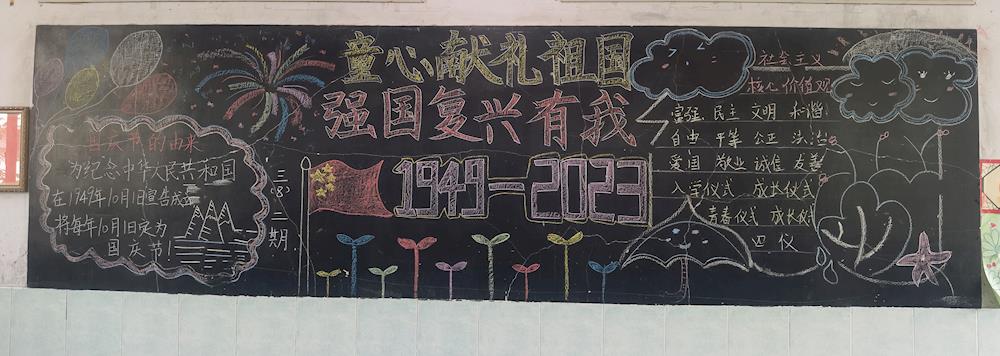 童心献礼祖国
强国复兴有我
1949—2023
国庆节的由来
为纪念中华人民共和国
在1949年10月1日宣告成立
将每年10月1日定为
国庆节!
三(8)
二期
社会主义
核心价值观
富强 民主 文明 和谐
自由 平等 公正 法治
爱国 敬业 诚信 友善
入学仪式 成长仪式
青春仪式 成长仪式
四仪